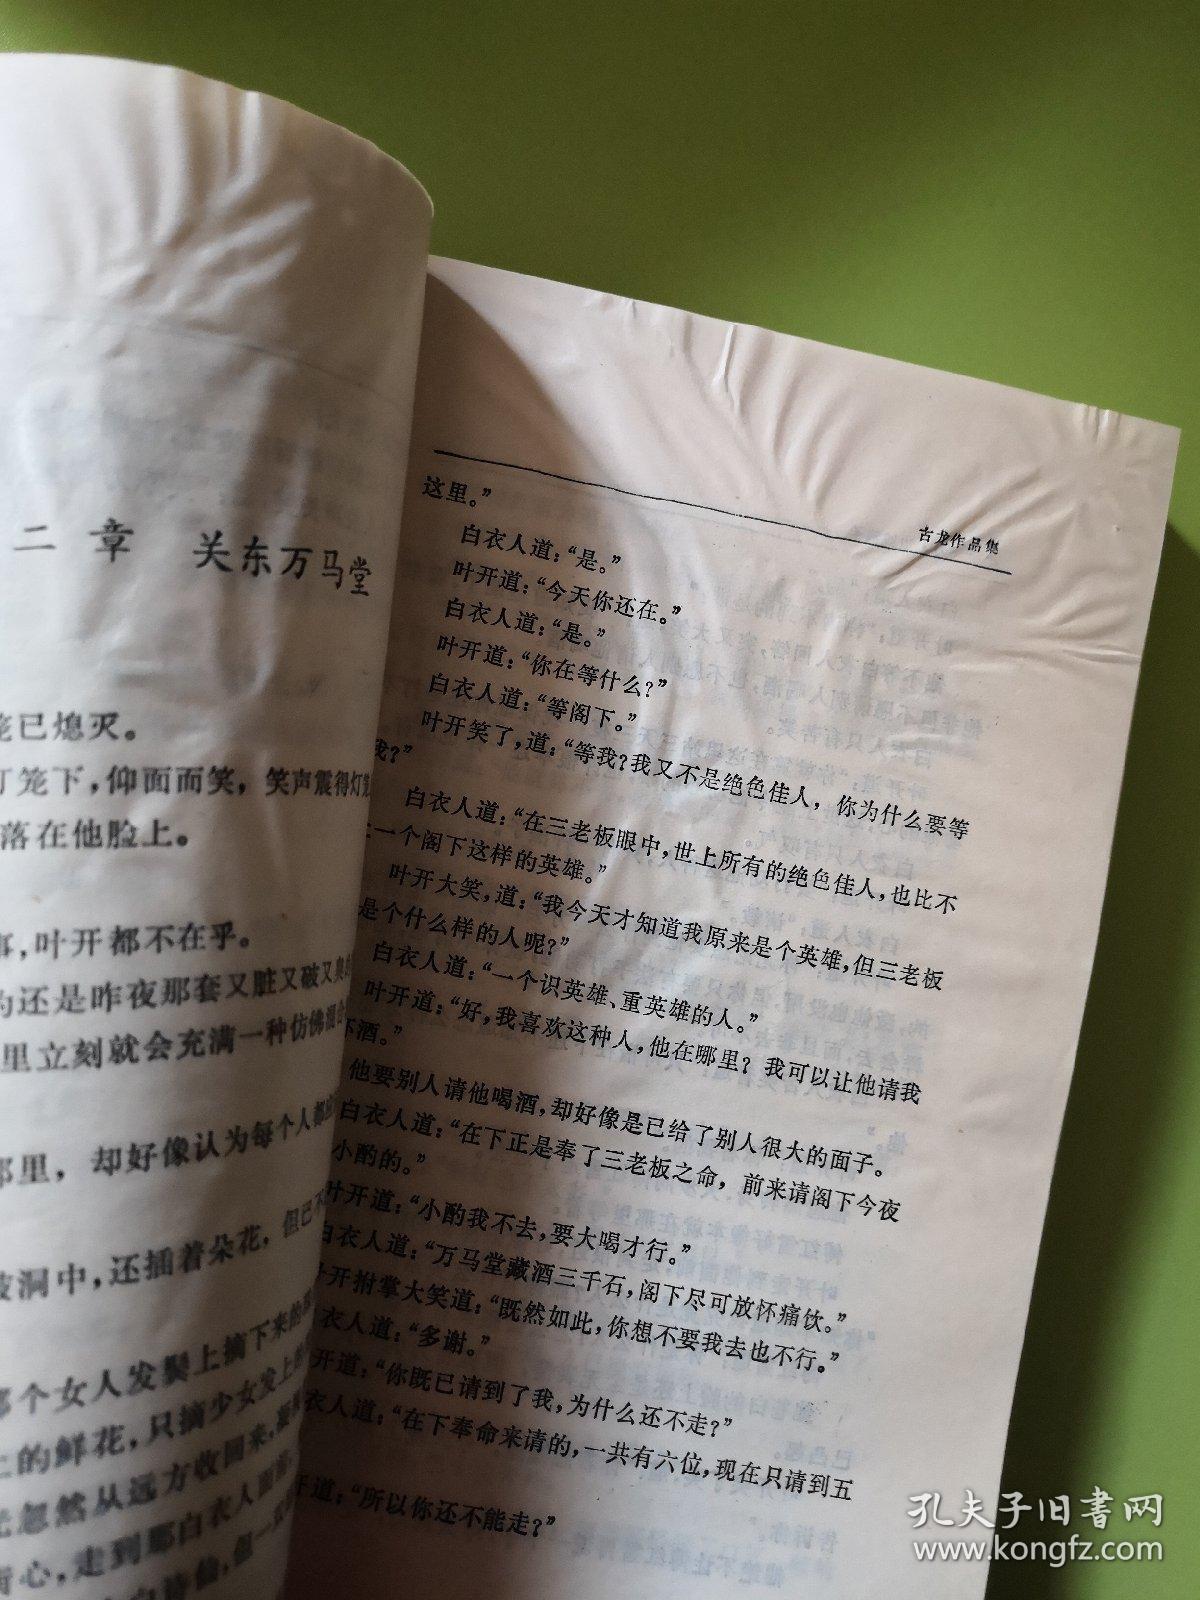 二章 关东万马堂
已熄灭。
笼下，仰面而笑，笑声震得灯
落在他脸上。
，叶开都不在乎。
还是昨夜那套又脏又破又臭
里立刻就会充满一种仿佛
里，却好像认为每个人都
洞中，还插着朵花，但已不
个女人发鬓上摘下来的
的鲜花，只摘少女发上的
忽然从远方收回来，
心，走到那白衣人面前，
古龙作品集
这里。”
白衣人道：“是。”
叶开道：“今天你还在。”
白衣人道：“是。”
叶开道：“你在等什么？”
白衣人道：“等阁下。”
叶开笑了，道：“等我？我又不是绝色佳人，你为什么要等
我？”
白衣人道：“在三老板眼中，世上所有的绝色佳人，也比不
一个阁下这样的英雄。”
叶开大笑，道：“我今天才知道我原来是个英雄，但三老板
是个什么样的人呢？”
白衣人道：“一个识英雄、重英雄的人。”
叶开道：“好，我喜欢这种人，他在哪里？我可以让他请我
下酒。”
他要别人请他喝酒，却好像是已给了别人很大的面子。
白衣人道：“在下正是奉了三老板之命，前来请阁下今夜
小酌的。”
叶开道：“小酌我不去，要大喝才行。”
白衣人道：“万马堂藏酒三千石，阁下尽可放怀痛饮。”
叶开拊掌大笑道：“既然如此，你想不要我去也不行。”
衣人道：“多谢。”
开道：“你既已请到了我，为什么还不走？”
衣人道：“在下奉命来请的，一共有六位，现在只请到五
开道：“所以你还不能走？”
孔夫子旧书网
www.kongfz.com